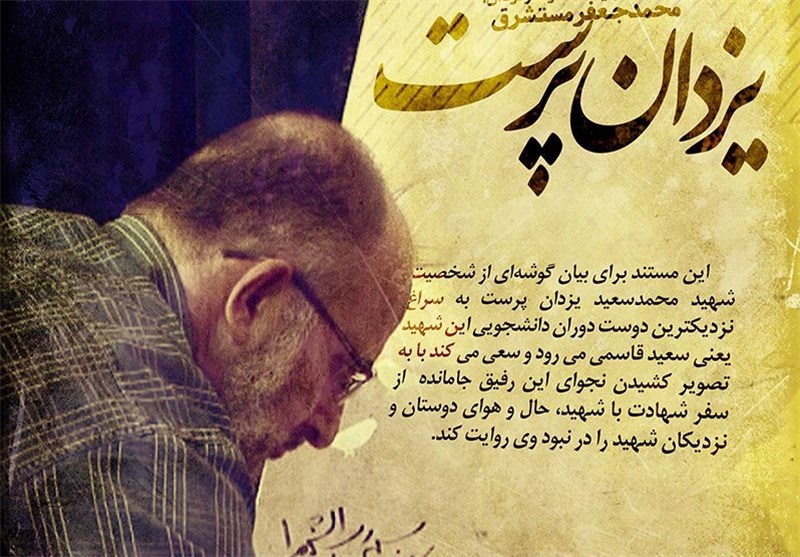 محمدجعفر مستشرق
یزدان پرست
این مستند برای بیان گوشه‌ای از شخصیت
شهید محمدسعید یزدان پرست به سراغ
نزدیکترین دوست دوران دانشجویی این شهید
یعنی سعید قاسمی می رود و سعی می کند با به
تصویر کشیدن نجوای این رفیق جامانده از
سفر شهادت با شهید، حال و هوای دوستان و
نزدیکان شهید را در نبود وی روایت کند.